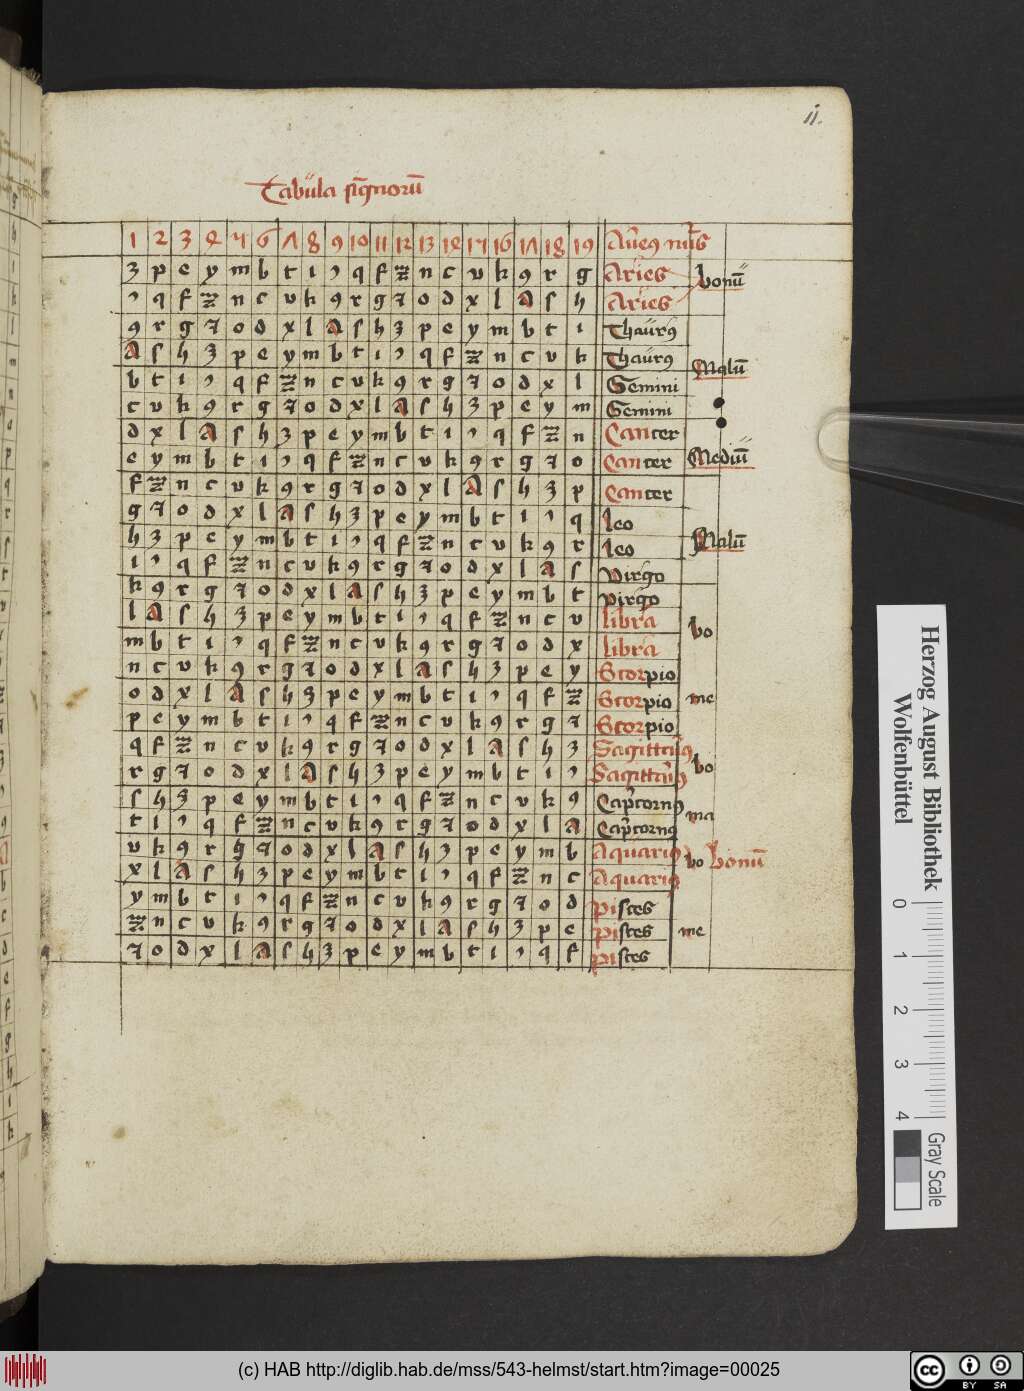 ii.
Tabula signorū
1 2 3 4 5 6 7 8 9 10 11 12 13 14 15 16 17 18 19 Aūeꝰ nūs
3 p e y m b t i ꝰ q f z n c v k 9 r g Aries bonū
ꝰ q f z n c v k 9 r g 7 o d x l A s h Aries
9 r g 7 o d x l A s h 3 p e y m b t i Thaurꝰ
A s h 3 p e y m b t i ꝰ q f z n c v k Thaurꝰ Malū
b t i ꝰ q f z n c v k 9 r g 7 o d x l Gemini
c v k 9 r g 7 o d x l A s h 3 p e y m Gemini
d x l A s h 3 p e y m b t i ꝰ q f z n Cancer
e y m b t i ꝰ q f z n c v k 9 r g 7 o Cancer Mediū
f z n c v k 9 r g 7 o d x l A s h 3 p Cancer
g 7 o d x l A s h 3 p e y m b t i ꝰ q leo
h 3 p e y m b t i ꝰ q f z n c v k 9 r leo Malū
i ꝰ q f z n c v k 9 r g 7 o d x l A s virgo
k 9 r g 7 o d x l A s h 3 p e y m b t virgo
l A s h 3 p e y m b t i ꝰ q f z n c v libra bo
m b t i ꝰ q f z n c v k 9 r g 7 o d x libra
n c v k 9 r g 7 o d x l A s h 3 p e y Scorpio
o d x l A s h 3 p e y m b t i ꝰ q f z Scorpio me
p e y m b t i ꝰ q f z n c v k 9 r g 7 Scorpio
q f z n c v k 9 r g 7 o d x l A s h 3 Sagittriꝰ
r g 7 o d x l A s h 3 p e y m b t i ꝰ Sagittriꝰ bo
s h 3 p e y m b t i ꝰ q f z n c v k 9 Cap̄cornꝰ ma
t i ꝰ q f z n c v k 9 r g 7 o d x l A Cap̄cornꝰ
v k 9 r g 7 o d x l A s h 3 p e y m b Aquariꝰ bo bonū
x l A s h 3 p e y m b t i ꝰ q f z n c Aquariꝰ
y m b t i ꝰ q f z n c v k 9 r g 7 o d pisces
z n c v k 9 r g 7 o d x l A s h 3 p e pisces me
7 o d x l A s h 3 p e y m b t i ꝰ q f pisces
Herzog August Bibliothek
Wolfenbüttel
0 1 2 3 4
Gray Scale
(c) HAB http://diglib.hab.de/mss/543-helmst/start.htm?image=00025
cc BY SA